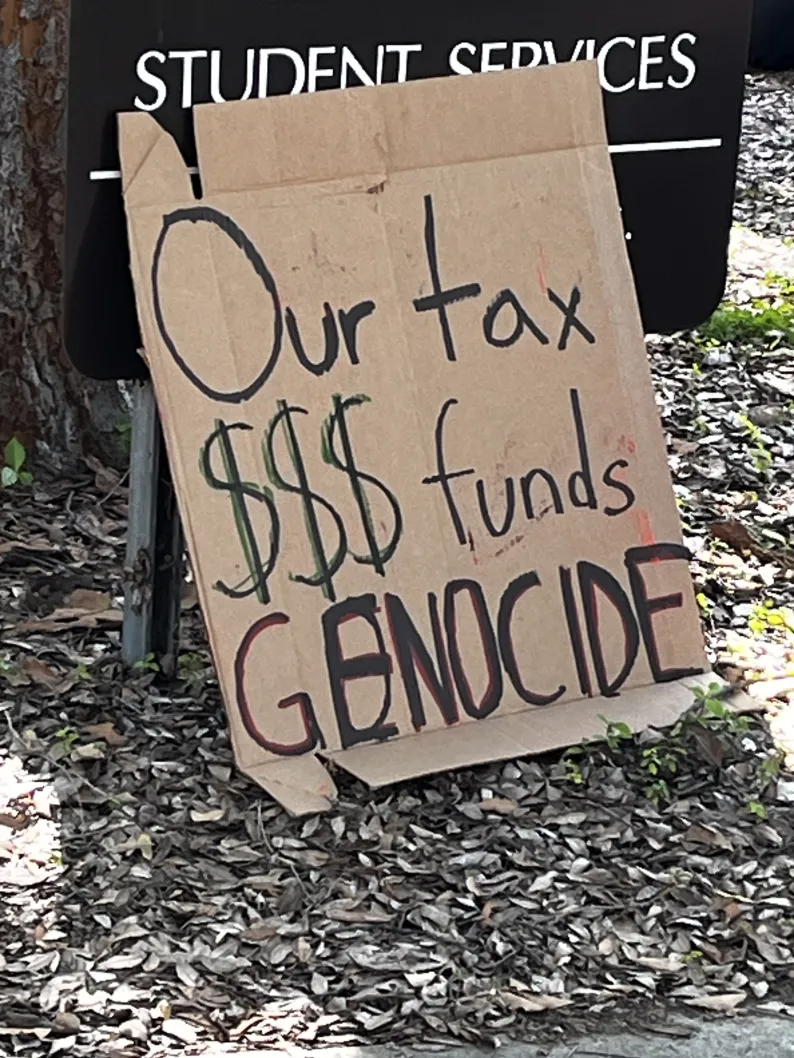 STUDENT SERVICES
Our tax
$$$ funds
GENOCIDE